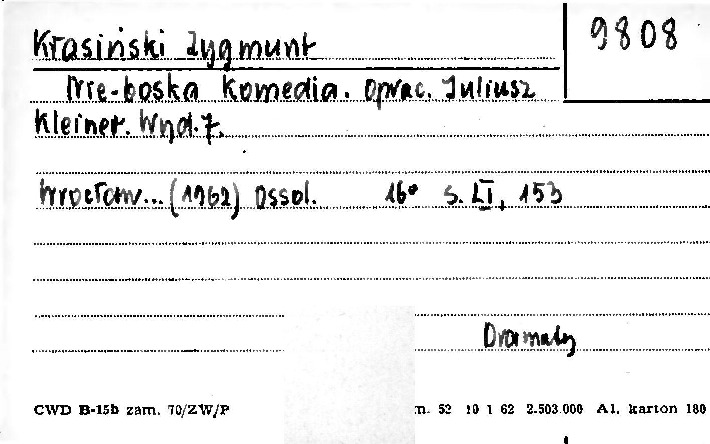 9808
Krasiński Zygmunt
Nie-boska komedia. Oprac. Juliusz
Kleiner. Wyd. 7.
Wrocław... (1962) Ossol. 16° s. LI, 153
Dramaty
CWD B-15b zam. 70/ZW/P
n. 52 10 1 62 2.503.000 A1. karton 180